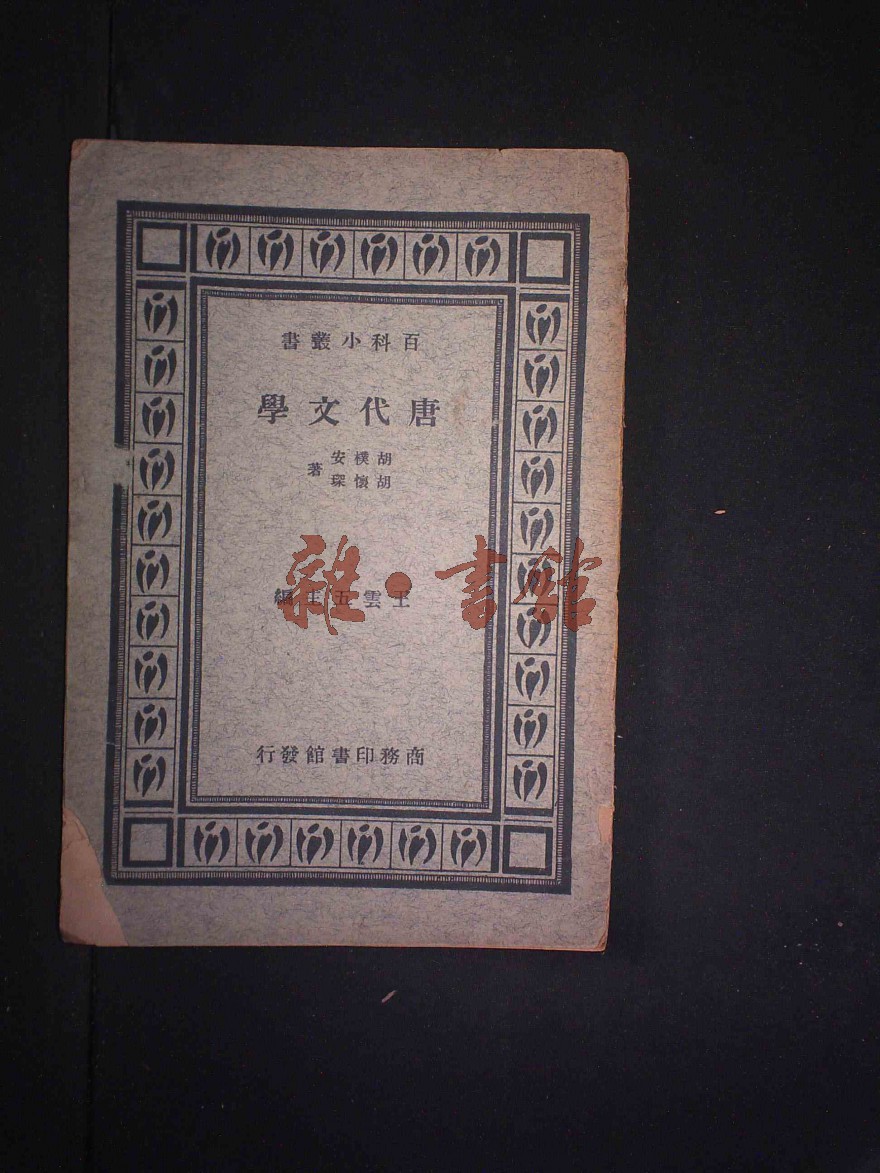 百科小叢書
唐代文學
胡樸安
胡懷琛
著
王雲五主編
雜·書館
商務印書館發行